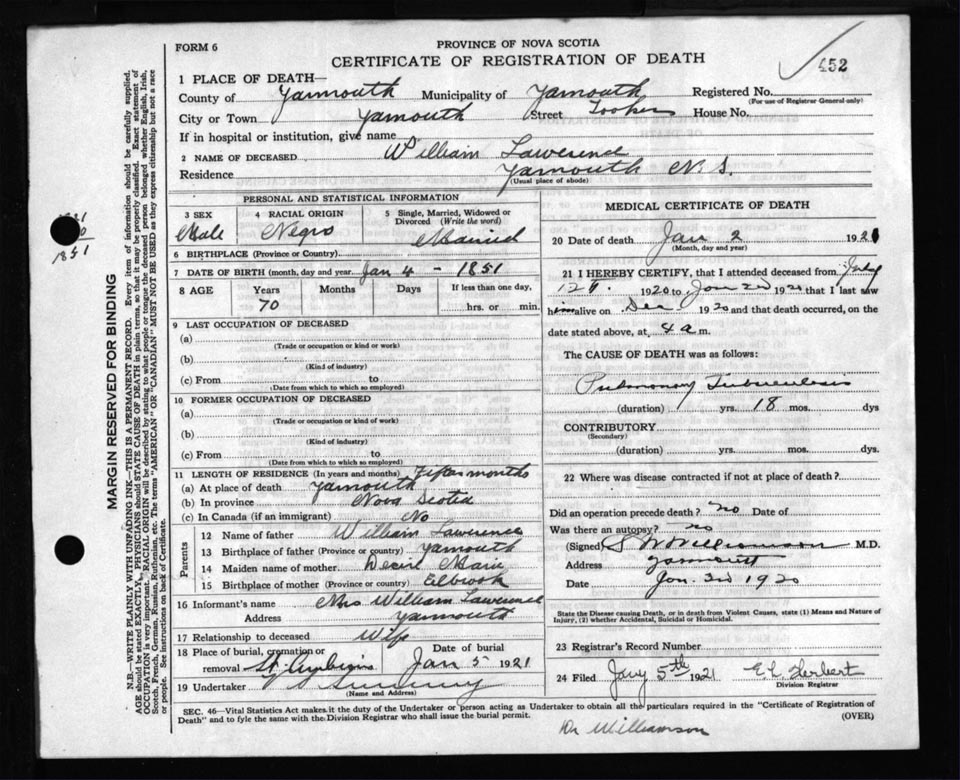 FORM 6
PROVINCE OF NOVA SCOTIA
452
CERTIFICATE OF REGISTRATION OF DEATH
1 PLACE OF DEATH—
County of Yarmouth Municipality of Yarmouth Registered No.
(For use of Registrar General only)
City or Town Yarmouth Street Tooker House No.
If in hospital or institution, give name
2 NAME OF DECEASED William Lawerence
Residence Yarmouth N. S.
(Usual place of abode)
PERSONAL AND STATISTICAL INFORMATION
3 SEX Male
4 RACIAL ORIGIN Negro
5 Single, Married, Widowed or Divorced (Write the word) Married
6 BIRTHPLACE (Province or Country)
7 DATE OF BIRTH (month, day and year) Jan 4 - 1851
8 AGE Years Months Days If less than one day,
70 hrs. or min.
9 LAST OCCUPATION OF DECEASED
(a)
(Trade or occupation or kind or work)
(b)
(Kind of industry)
(c) From to
(Date from which to which so employed)
10 FORMER OCCUPATION OF DECEASED
(a)
(Trade or occupation or kind of work)
(b)
(Kind of industry)
(c) From to
(Date from which to which so employed)
11 LENGTH OF RESIDENCE (In years and months) months
(a) At place of death Yarmouth
(b) In province Nova Scotia
(c) In Canada (if an immigrant) No
Parents
12 Name of father William Lawerence
13 Birthplace of father (Province or country) Yarmouth
14 Maiden name of mother
15 Birthplace of mother (Province or country) Elbrook
16 Informant's name Mrs William Lawerence
Address Yarmouth
17 Relationship to deceased Wife
18 Place of burial, cremation or removal Date of burial Jan 5 1921
19 Undertaker Sweeny
(Name and Address)
MEDICAL CERTIFICATE OF DEATH
20 Date of death Jan 2 1921
(Month, day and year)
21 I HEREBY CERTIFY, that I attended deceased from July
12th 1920 to Jan 2nd 1920 that I last saw
him alive on Dec 1920 and that death occurred, on the
date stated above, at 4 a m.
The CAUSE OF DEATH was as follows:
Pulmonary Tuberculosis
(duration) yrs. 18 mos. dys
CONTRIBUTORY
(Secondary)
(duration) yrs. mos. dys.
22 Where was disease contracted if not at place of death?
Did an operation precede death? no Date of
Was there an autopsy? no
(Signed) S W Williamson M.D.
Address Yarmouth
Date Jan. 3rd 1920
State the Disease causing Death, or in death from Violent Causes, state (1) Means and Nature of
Injury, (2) whether Accidental, Suicidal or Homicidal.
23 Registrar's Record Number
24 Filed Jany 5th 1921 E L Herbert
Division Registrar
SEC. 46—Vital Statistics Act makes it the duty of the Undertaker or person acting as Undertaker to obtain all the particulars required in the "Certificate of Registration of
Death" and to fyle the same with the Division Registrar who shall issue the burial permit.
(OVER)
Dr Williamson
1851
MARGIN RESERVED FOR BINDING
N.B.—WRITE PLAINLY WITH UNFADING INK—THIS IS A PERMANENT RECORD. Every item of information should be carefully supplied.
AGE should be stated EXACTLY. PHYSICIANS should STATE CAUSE OF DEATH in plain terms, so that it may be properly classified. Exact statement of
OCCUPATION is very important. RACIAL ORIGIN will be described by stating to what people or tongue the deceased person belonged whether English, Irish,
Scotch, French, German, Russian, Ruthenian, etc. The terms "AMERICAN" OR "CANADIAN" MUST NOT BE USED as they express citizenship but not a race
or people. See instructions on back of Certificate.